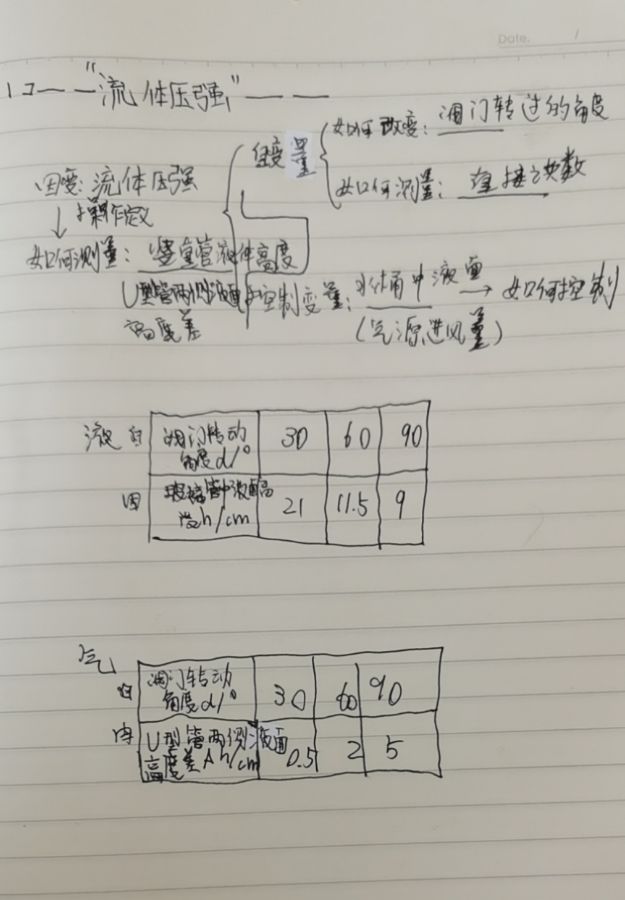 Date. /
"流体压强"
自变量
如何改变：阀门转过的角度
因变：流体压强
如何测量：直接读数
操作定义
如何测量：竖直管液体高度
U型管两侧液面
高度差
控制变量：水桶中液面 → 如何控制
(气源进风量)
液 自 阀门转动 30 60 90
角度d/°
因 玻璃管中液面高 21 11.5 9
度h/cm
气
自 阀门转动 30 60 90
角度d/°
因 U型管两侧液面 0.5 2 5
高度差Δh/cm